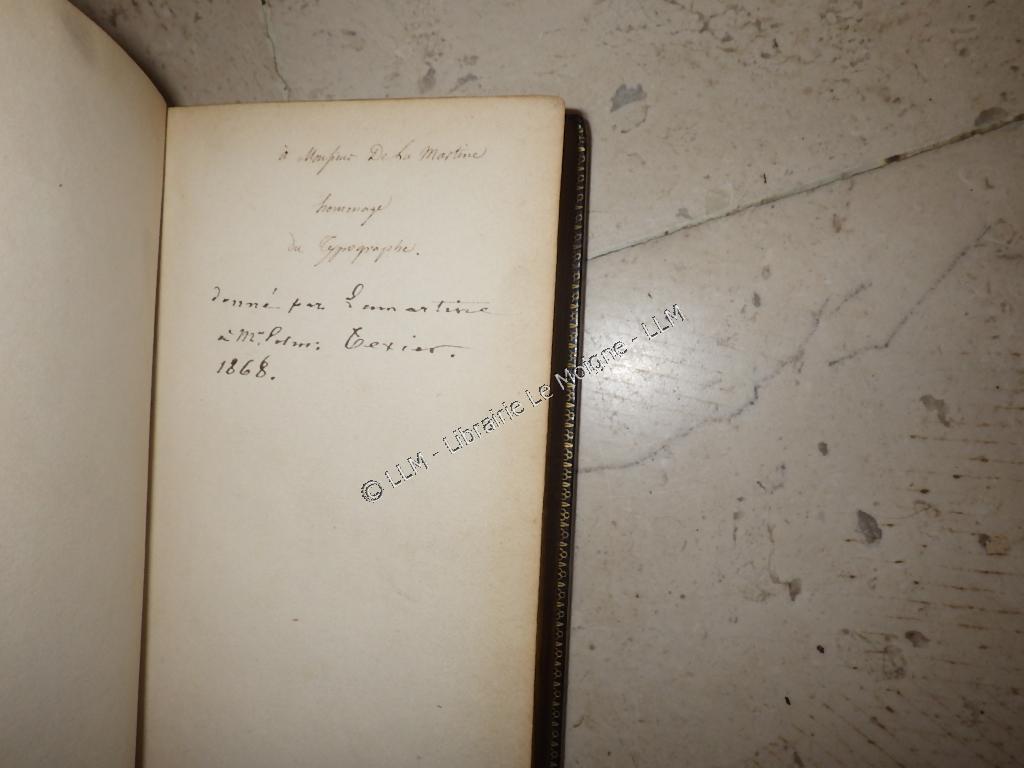 à Monsieur De La Martine
hommage
du Typographe.
donné par Lamartine
à Mr. Texier.
1868.
© LLM - Librairie Le Moigne - LLM